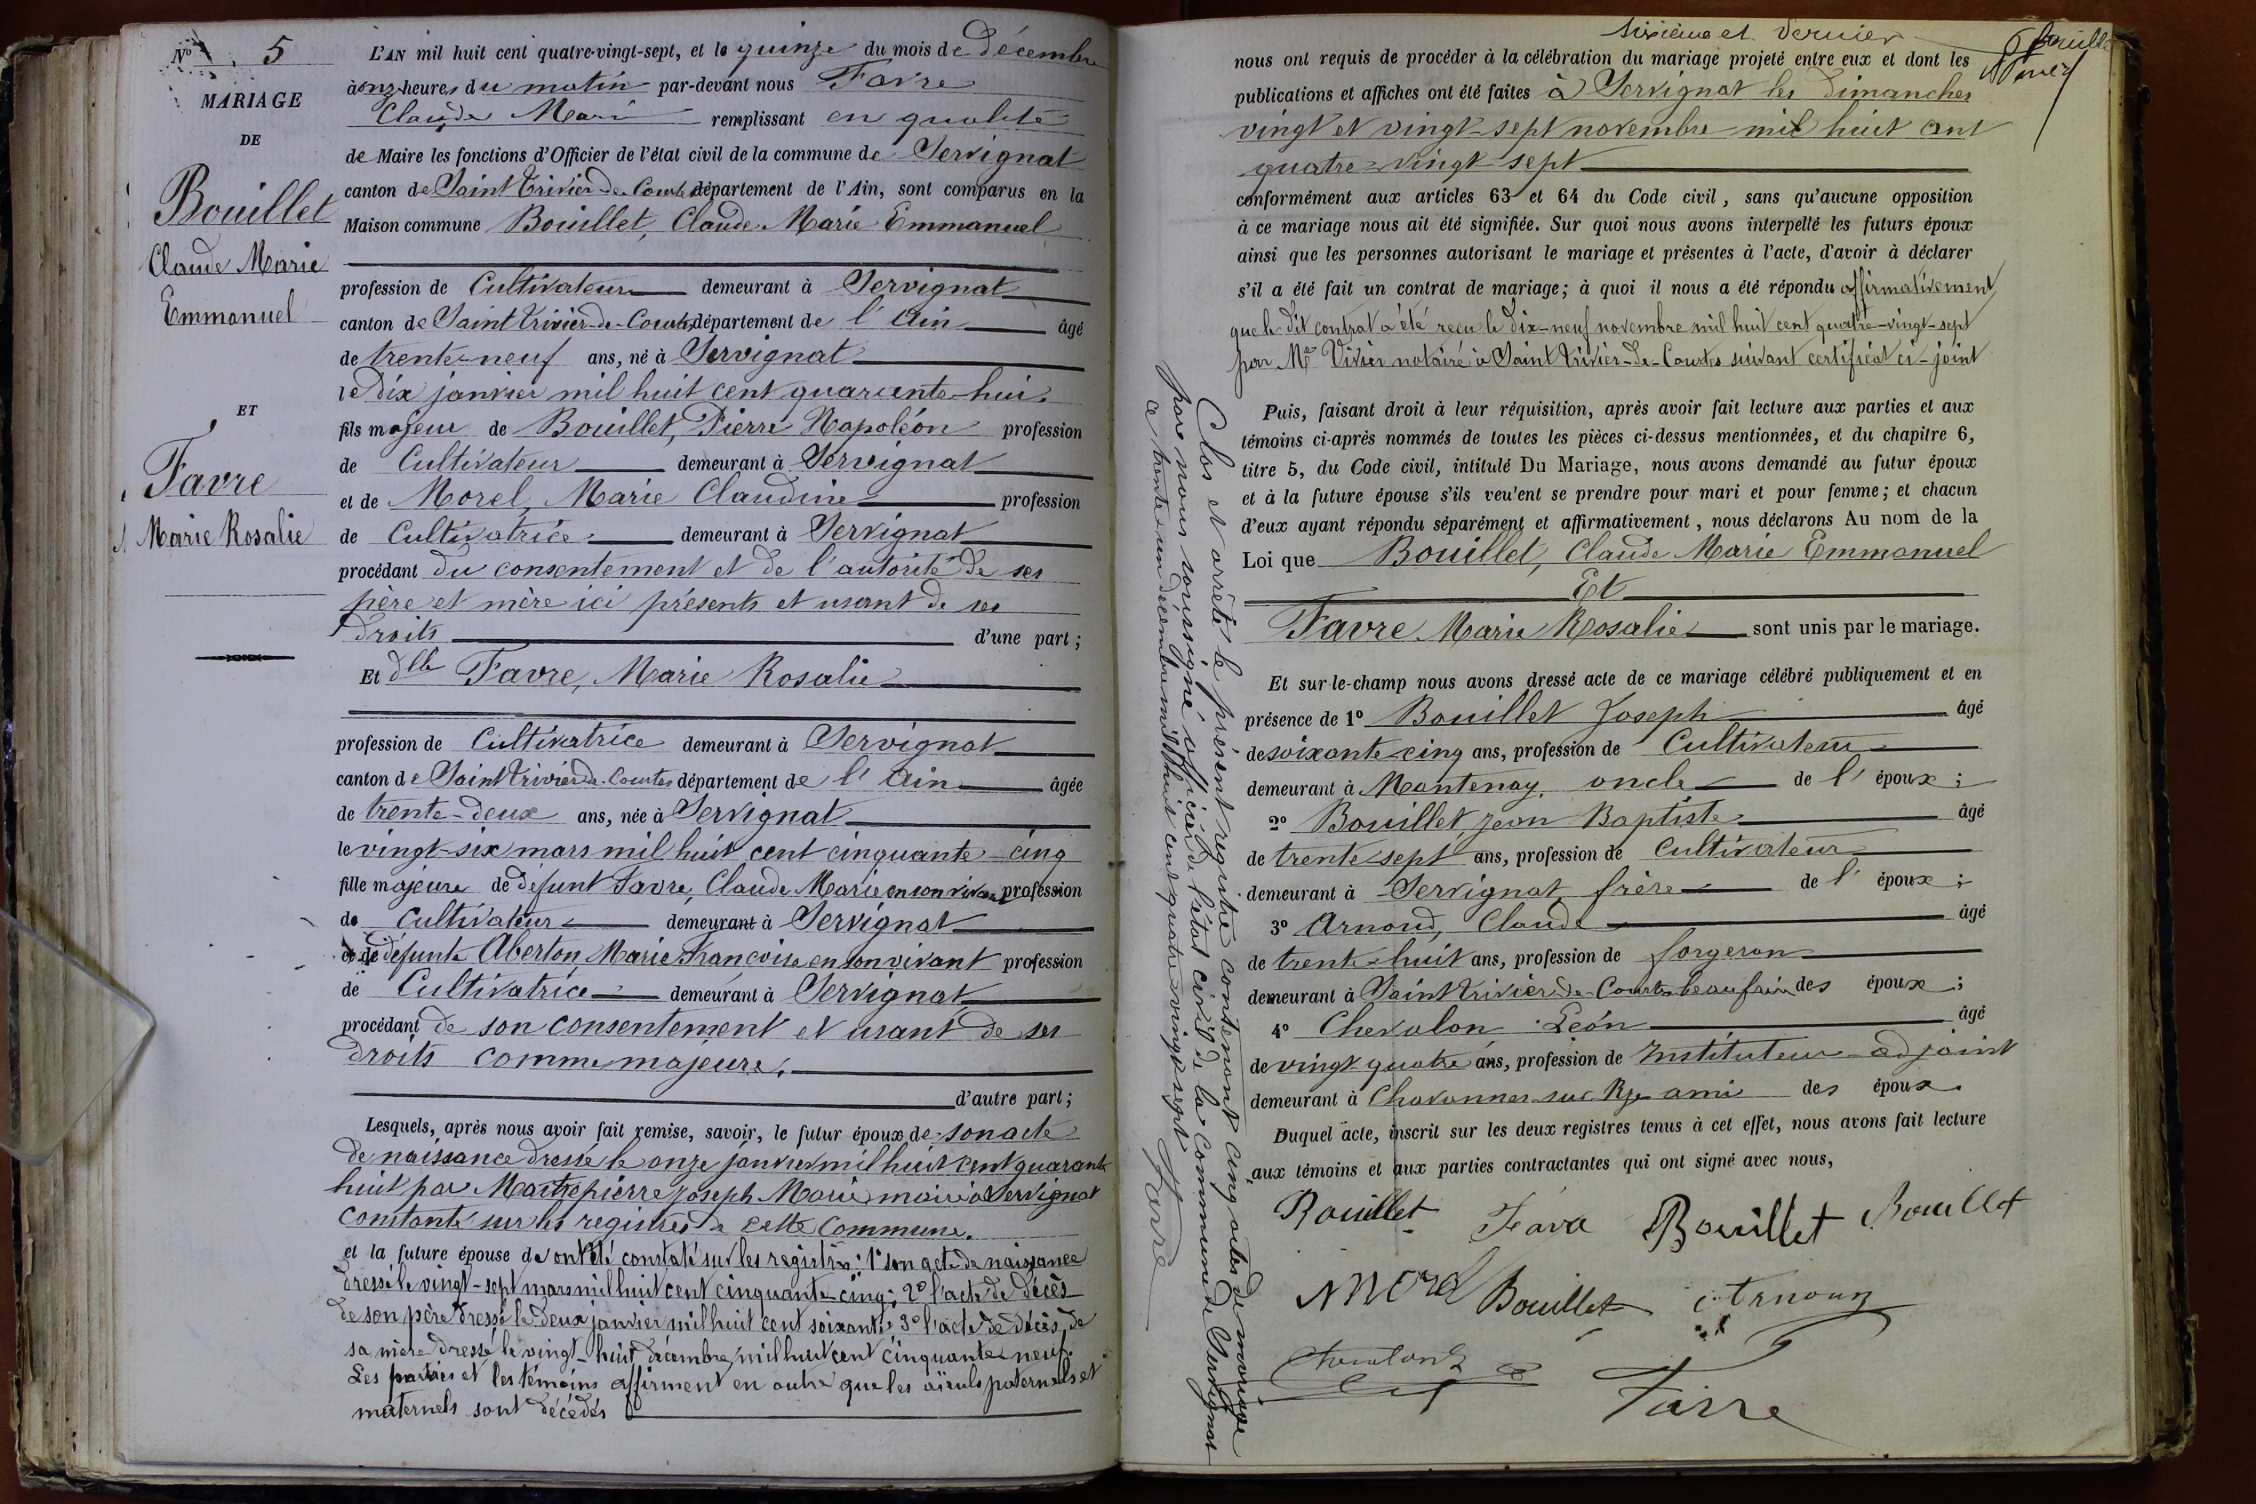 No 5
MARIAGE
DE
Bouillet
Claude Marie
Emmanuel
ET
Favre
Marie Rosalie
L'AN mil huit cent quatre-vingt-sept, et le quinze du mois de décembre
à onze heures du matin par-devant nous Favre
Claude Marie remplissant en qualité
de Maire les fonctions d'Officier de l'état civil de la commune de Servignat
canton de Saint Trivier-de-Courtes département de l'Ain, sont comparus en la
Maison commune Bouillet, Claude Marie Emmanuel
profession de Cultivateur demeurant à Servignat
canton de Saint Trivier-de-Courtes, département de l'Ain âgé
de trente-neuf ans, né à Servignat
le dix janvier mil huit cent quarante-huit
fils majeur de Bouillet, Pierre Napoléon profession
de Cultivateur demeurant à Servignat
et de Morel, Marie Claudine profession
de Cultivatrice demeurant à Servignat
procédant du consentement et de l'autorité de ses
père et mère ici présents et usant de ses
droits d'une part;
Et dlle Favre, Marie Rosalie
profession de Cultivatrice demeurant à Servignat
canton de Saint Trivier-de-Courtes département de l'Ain âgée
de trente-deux ans, née à Servignat
le vingt-six mars mil huit cent cinquante-cinq
fille majeure de defunt Favre, Claude Marie en son vivant profession
de Cultivateur demeurant à Servignat
et de défunte Aberton, Marie Françoise en son vivant profession
de Cultivatrice demeurant à Servignat
procédant de son consentement et usant de ses
droits comme majeure.
d'autre part;
Lesquels, après nous avoir fait remise, savoir, le futur époux de son acte
de naissance dressé le onze janvier mil huit cent quarante
huit par Maitrepierre Joseph Marie maire à Servignat
constaté sur les registres de cette commune.
et la future épouse de ont été constaté sur les registres: 1° son acte de naissance
dressé le vingt-sept mars mil huit cent cinquante-cinq; 2° l'acte de décès
de son père dressé le deux janvier mil huit cent soixante; 3° l'acte de décès de
sa mère dressé le vingt-huit décembre mil huit cent cinquante neuf.
Les parties et les témoins affirment en outre que les aïeuls paternels et
maternels sont décédés
Sixième et dernier
nous ont requis de procéder à la célébration du mariage projeté entre eux et dont les
publications et affiches ont été faites à Servignat les dimanches
vingt et vingt-sept novembre mil huit cent
quatre-vingt-sept
conformément aux articles 63 et 64 du Code civil, sans qu'aucune opposition
à ce mariage nous ait été signifiée. Sur quoi nous avons interpellé les futurs époux
ainsi que les personnes autorisant le mariage et présentes à l'acte, d'avoir à déclarer
s'il a été fait un contrat de mariage; à quoi il nous a été répondu affirmativement
que le dit contrat a été reçu le dix-neuf novembre mil huit cent quatre-vingt-sept
par Me Vivier notaire à Saint Trivier-de-Courtes suivant certificat ci-joint
Puis, faisant droit à leur réquisition, après avoir fait lecture aux parties et aux
témoins ci-après nommés de toutes les pièces ci-dessus mentionnées, et du chapitre 6,
titre 5, du Code civil, intitulé Du Mariage, nous avons demandé au futur époux
et à la future épouse s'ils veu'ent se prendre pour mari et pour femme; et chacun
d'eux ayant répondu séparément et affirmativement, nous déclarons Au nom de la
Loi que Bouillet, Claude Marie Emmanuel
Et
Favre Marie Rosalie sont unis par le mariage.
Et sur-le-champ nous avons dressé acte de ce mariage célébré publiquement et en
présence de 1° Bouillet Joseph âgé
de soixante-cinq ans, profession de Cultivateur
demeurant à Mantenay oncle de l'époux;
2° Bouillet, Jean Baptiste âgé
de trente-sept ans, profession de Cultivateur
demeurant à Servignat frère de l'époux;
3° Arnoud, Claude âgé
de trente-huit ans, profession de forgeron
demeurant à Saint Trivier-de-Courtes beaufrère des époux;
4° Chevalon Léon âgé
de vingt quatre ans, profession de Instituteur adjoint
demeurant à Chavannes sur Rze ami des époux.
Duquel acte, inscrit sur les deux registres tenus à cet effet, nous avons fait lecture
aux témoins et aux parties contractantes qui ont signé avec nous,
Bouillet Favre Bouillet Bouillet
Morel Bouillet Arnoud
Favre
Clos et arrêté le présent registre contenant cinq actes de mariage
par nous soussigné officier de l'état civil de la commune de Servignat
ce trente-un décembre mil huit cent quatre-vingt-sept Favre